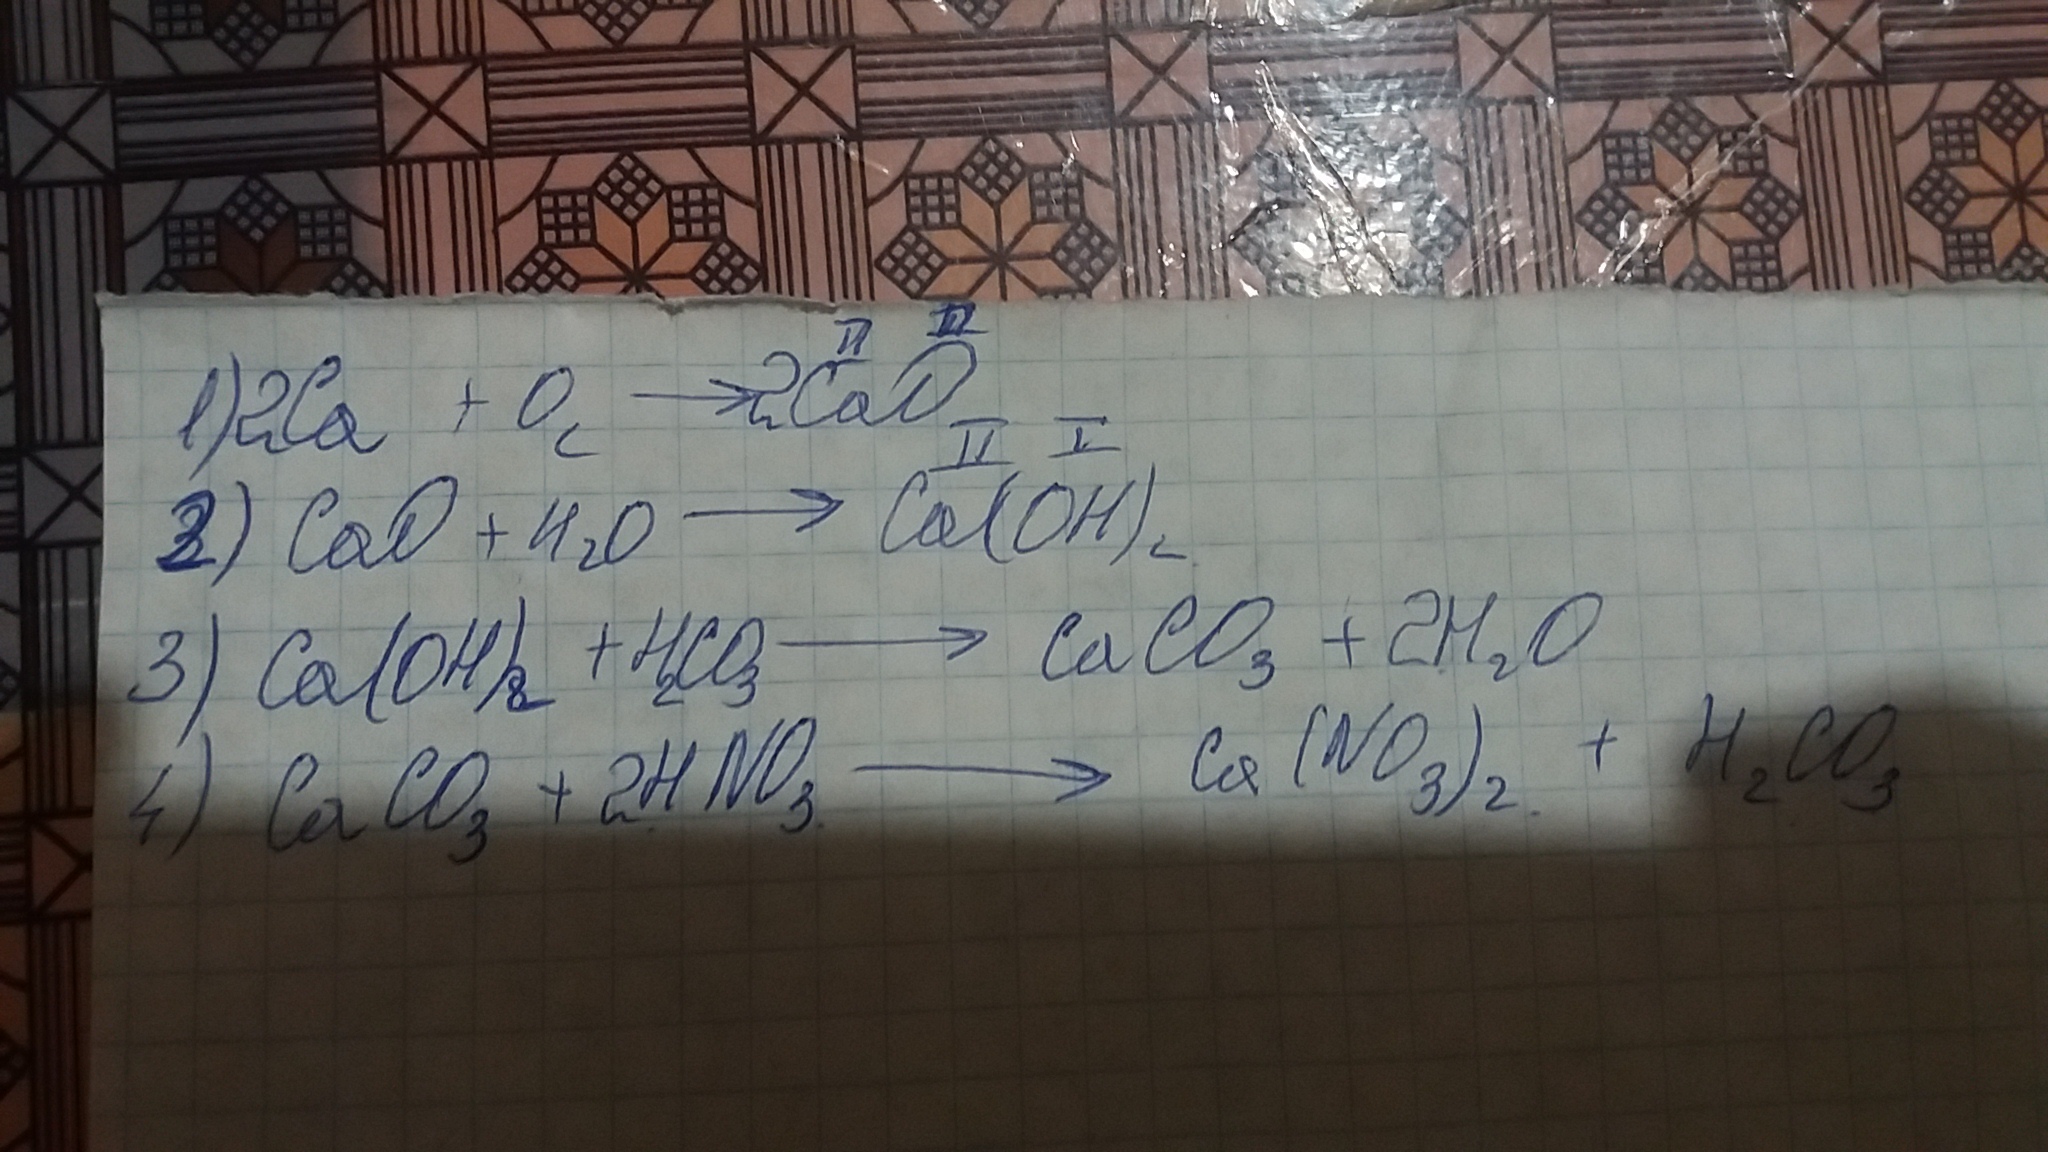 II II
1) 2Ca + O₂ → 2CaO
II I
2) CaO + H₂O → Ca(OH)₂
3) Ca(OH)₂ + H₂CO₃ → CaCO₃ + 2H₂O
4) CaCO₃ + 2HNO₃ → Ca(NO₃)₂ + H₂CO₃